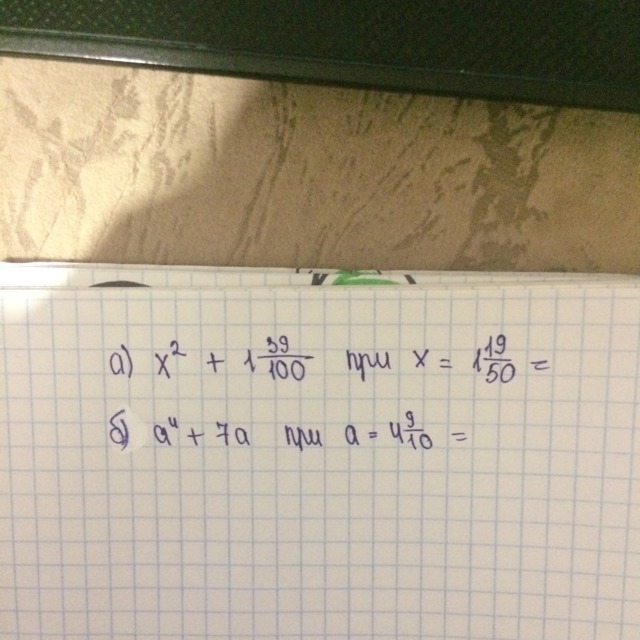 а) x² + 1 39/100 при x = 1 19/50 =
б) a⁴ + 7a при a = 4 9/10 =